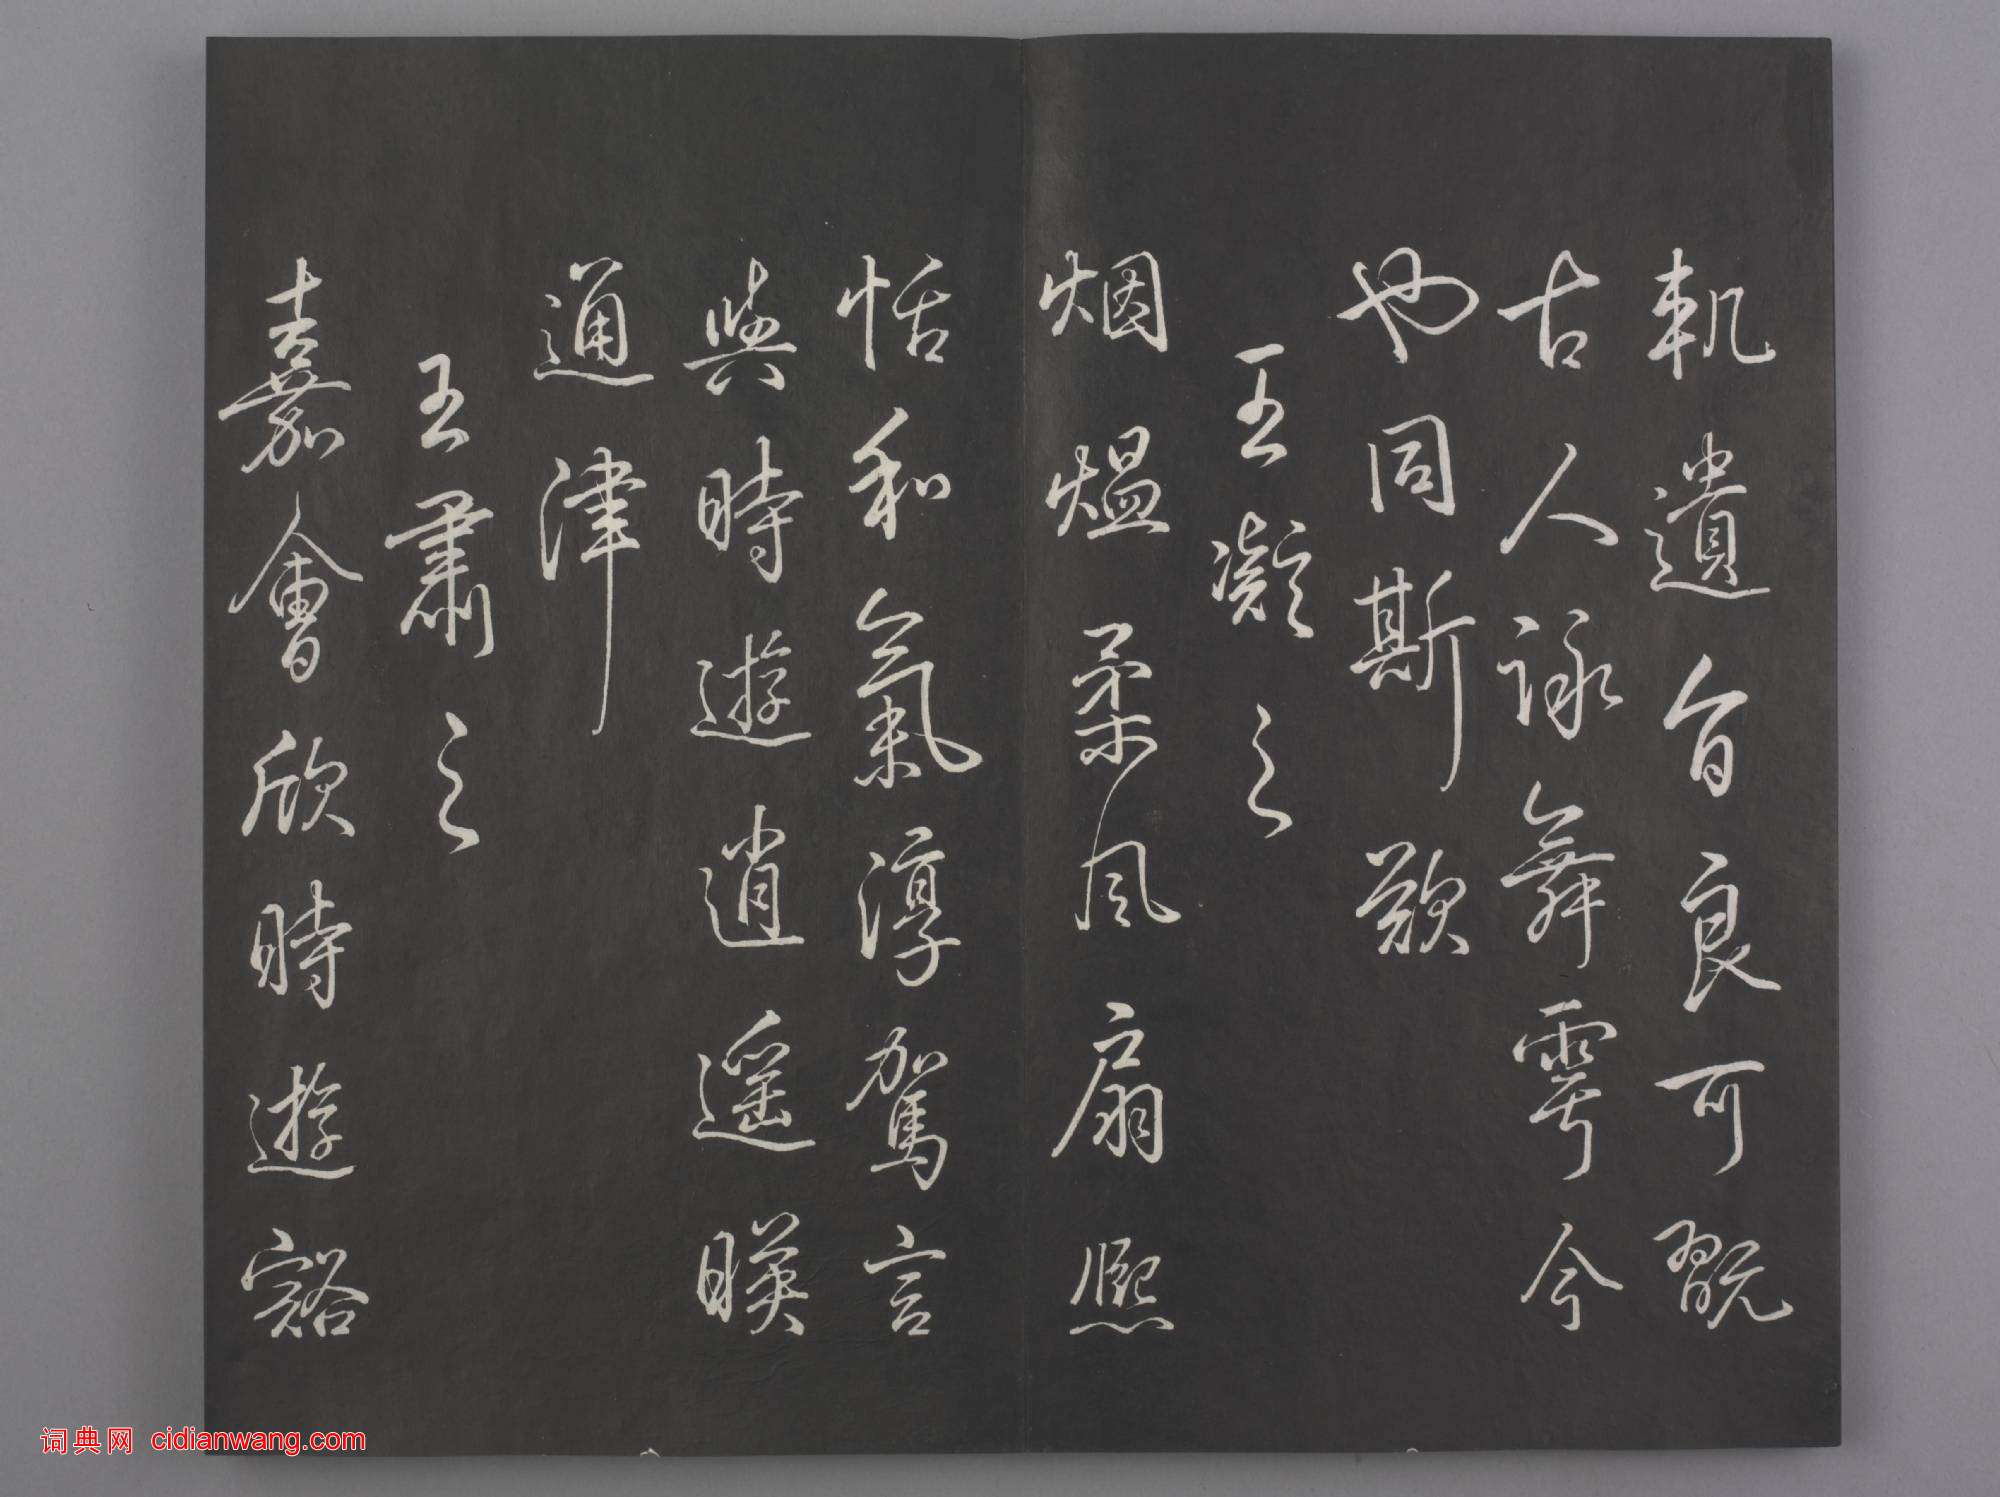 軌遺音良可翫
古人詠舞雩今
也同斯歎
王凝之
烟熅柔風扇熙
恬和氣淳駕言
與時遊逍遙暎
通津
王肅之
嘉會欣時遊豁
词典网 cidianwang.com